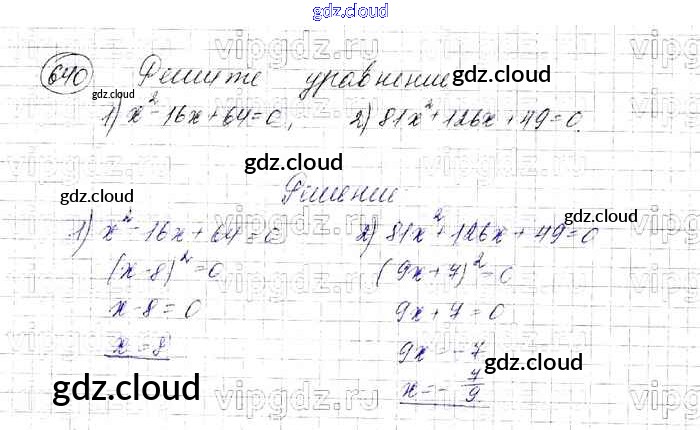 gdz.cloud
640 Решите уравнение
1) x² - 16x + 64 = 0, 2) 81x² + 126x + 49 = 0.
Решение
1) x² - 16x + 64 = 0
(x - 8)² = 0
x - 8 = 0
x = 8
2) 81x² + 126x + 49 = 0
(9x + 7)² = 0
9x + 7 = 0
9x = -7
x = - 7/9
gdz.cloud
gdz.cloud
gdz.cloud
gdz.cloud
gdz.cloud
gdz.cloud
gdz.cloud
gdz.cloud
vipgdz.ru
vipgdz.ru
vipgdz.ru